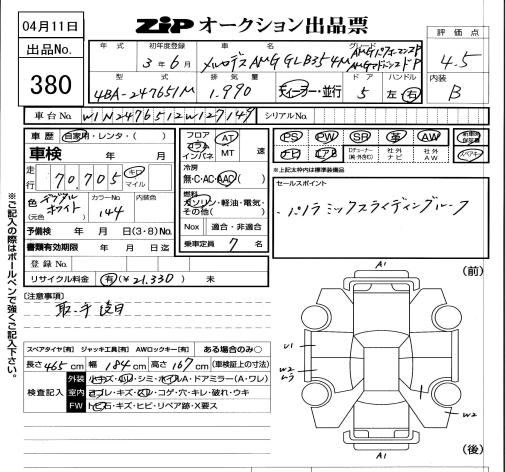 04月11日
ZIP オークション出品票
出品No.
380
年式 初年度登録 車名 グレード 評価点
3年6月 メルセデスAMG GLB35 4M AMGパフォーマンスP
AMGアドバンスドP
4.5
型式 排気量 ドア ハンドル 内装
4BA-247651M 1.990 ディーラー・並行 5 左・右 B
車台No. W1N2476512W127149 シリアルNo.
車歴 自家用・レンタ・( )
車検 年 月
走行 70,705 キロ マイル
色 デジタルホワイト (元色) カラーNo. 144 内装色
予備検 年 月(3・8)No.
書類有効期限 年 月 日迄
登録No.
リサイクル料金 有(¥21,330) 未
フロア コラム インパネ AT MT 速
冷房 無・C・AC・AAC
燃料 ガソリン・軽油・電気・その他( )
Nox 適合・非適合
乗車定員 7 名
PS PW SR 革 AW 新車時保証書
ナビ エアB TVチューナー(純・外含む) 社外ナビ 社外AW スペアキー
※上記太枠内は標準装備品
セールスポイント
・パノラミックスライディングルーフ
※ご記入の際はボールペンで強くご記入下さい。
[注意事項]
取・手 積
スペアタイヤ[有] ジャッキ工具[有] AWロックキー[有] ある場合のみ○
長さ465cm 幅184cm 高さ167cm (車検証上の寸法)
検査記入
外装 小キズ・凹・シミ・ホイルA・ドアミラー(A・ワレ)
室内 ヨゴレ・キズ・スレ・コゲ・穴・キレ・破れ・ウキ
FW トビ石・キズ・ヒビ・リペア跡・X要ス
A1
(前)
U1
W2
W2
A1
(後)